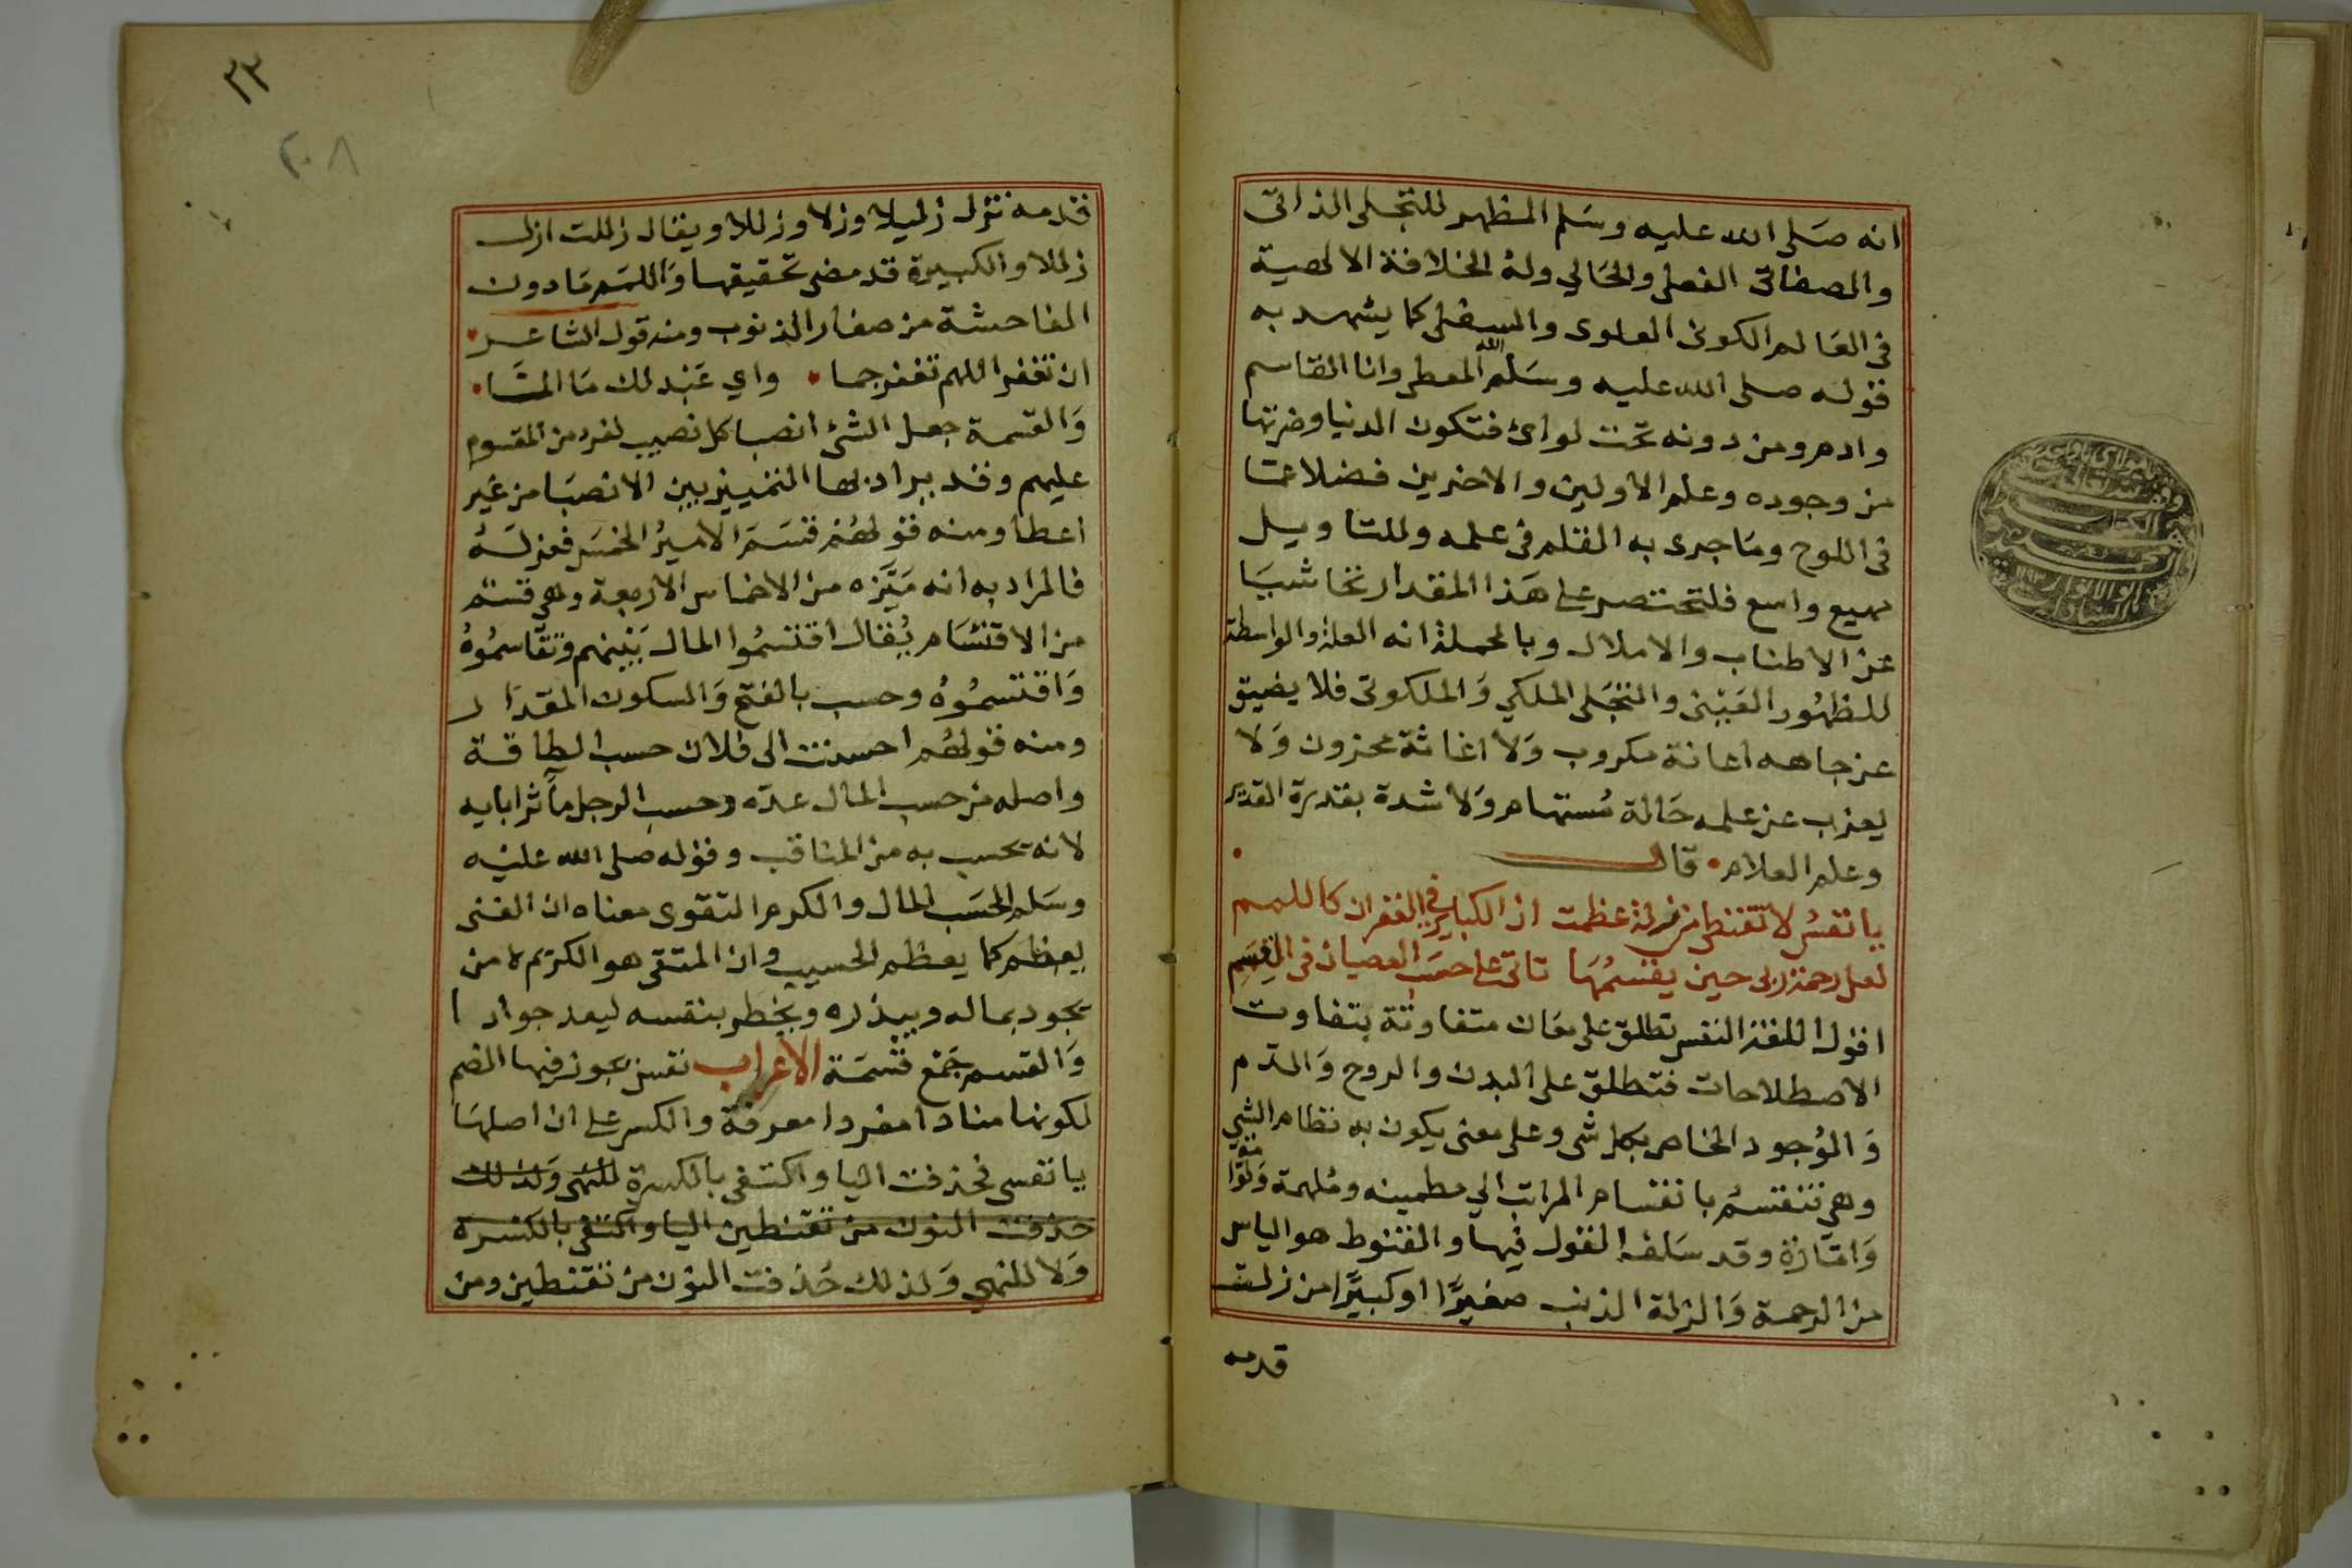 انه صلى الله عليه وسلم المظهر للتجلى الذاتى
والصفاتى الفعلى والحالي وله الخلافة الالهية
فى العالم الكونى العلوى والسفلى كما يشهد به
قوله صلى الله عليه وسلم الله المعطى وانا القاسم
وادم ومن دونه تحت لوائ فتكون الدنيا وضرتها
من وجوده وعلم الاولين والاخرين فضلا عما
فى اللوح وما جرى به القلم فى علمه وللتاويل
مهيع واسع فلتختصر على هذا المقدار تحاشيا
عن الاطناب والاملال وبالجملة انه العلة والواسطة
للظهور العينى والتجلى الملكي والملكوتى فلا يضيق
عن جاهه اعانة مكروب ولا اغاثة محزون ولا
يعزب عن علمه حالة مستهام ولا شدة بقدرة القدير
وعلم العلام • قال
يا نفس لا تقنطى من زلة عظمت ان الكباير فى الغفران كاللمم
لعل رحمة ربى حين يقسمها تاتى على حسب العصيان فى القسم
اقول اللغة النفس تطلق على معان متفاوتة بتفاوت
الاصطلاحات فتطلق على البدن والروح والدم
والموجود الخاص بكل شى وعلى معنى يكون به نظام الشي
وهى تنقسم بانقسام المراتب الي مطمينه وملهمة ولوا
مة
وامارة وقد سلف القول فيها والقنوط هو الياس
من الرحمة والزلة الذنب صغيرا او كبيرا من زلت
قدمه
٢٣
٢٠٨
قدمه تزل زليلا وزلا وزللا ويقال زللت ازل
زللا والكبيرة قد مضى تحقيقها واللمم ما دون
الفاحشة من صغار الذنوب ومنه قول الشاعر •
ان تغفر اللهم تغفر جما • واي عبد لك ما الما •
والقسمة جعل الشئ انصبا كل نصيب لفرد من المقسوم
عليهم وقد يراد بها التمييز بين الانصبا من غير
اعطا ومنه قولهم قسم الامير الخمس فعزله
فالمراد به انه ميزه من الاخماس الاربعة وهى قسم
من الاقتسام يقال اقتسموا المال بينهم وتقاسموه
واقتسموه وحسب بالفتح والسكون المقدار
ومنه قولهم احسنت الى فلان حسب الطاقة
واصله من حسب المال عده وحسب الرجل مآثر ابايه
لانه يحسب به من المناقب وقوله صلى الله عليه
وسلم الحسب المال والكرم التقوى معناه ان الغنى
يعظم كما يعظم الحسيب وان المتقى هو الكريم لا من
يجود بماله ويبذره ويخطر بنفسه ليعد جوادا
والقسم جمع قسمة الأعراب نفس يجوز فيها الضم
لكونها منادا مفردا معرفة والكسر على ان اصلها
يا نفسى فحذفت اليا واكتفى بالكسرة للنهى ولذلك
حذفت النون من تقنطين اليا واكتفى بالكسرة
ولا للنهي ولذلك حذفت النون من تقنطين ومن